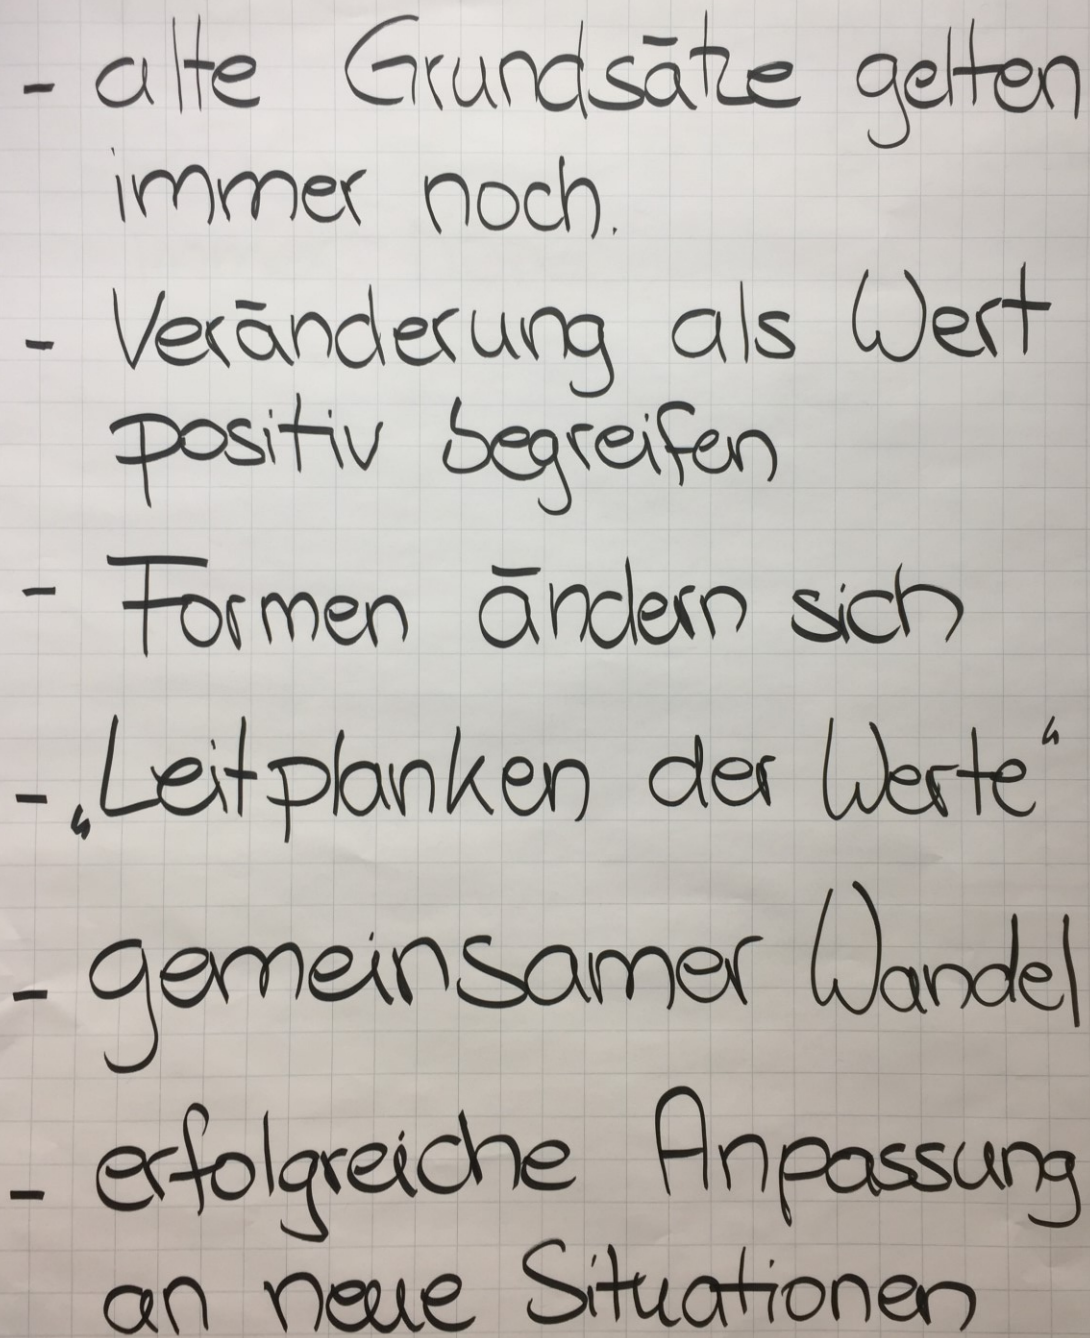 - alte Grundsätze gelten
immer noch.
- Veränderung als Wert
positiv begreifen
- Formen ändern sich
- „Leitplanken der Werte“
- gemeinsamer Wandel
- erfolgreiche Anpassung
an neue Situationen